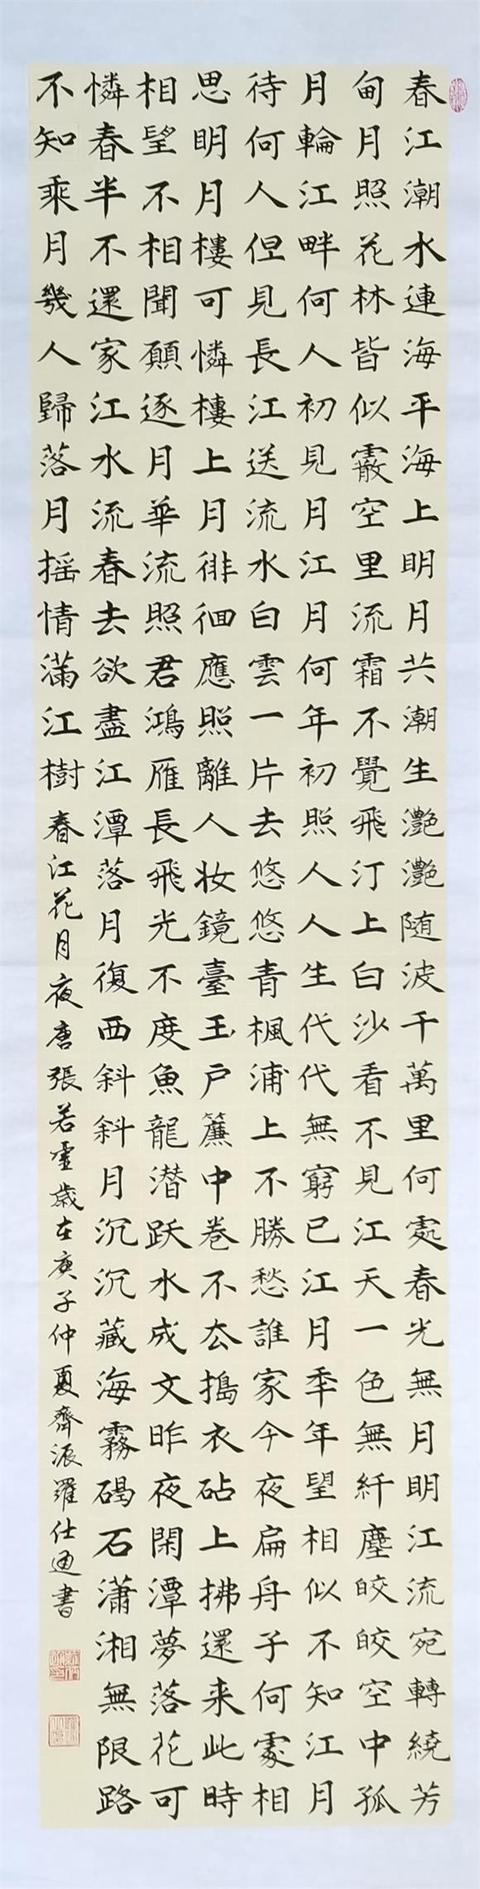 春江潮水連海平海上明月共潮生灧灧随波千萬里何處春光無月明江流宛轉繞芳
甸月照花林皆似霰空里流霜不覺飛汀上白沙看不見江天一色無纤塵皎皎空中孤
月輪江畔何人初見月江月何年初照人人生代代無窮已江月季年望相似不知江月
待何人但見長江送流水白雲一片去悠悠青楓浦上不勝愁誰家今夜扁舟子何處相
思明月樓可憐樓上月徘徊應照離人妆鏡臺玉户簾中卷不去搗衣砧上拂還来此時
相望不相聞願逐月華流照君鴻雁長飛光不度魚龍潜跃水成文昨夜閑潭夢落花可
憐春半不還家江水流春去欲盡江潭落月復西斜斜月沉沉藏海霧碣石瀟湘無限路
不知乘月幾人歸落月摇情滿江樹春江花月夜唐張若虚歲在庚子仲夏齊派羅仕通書